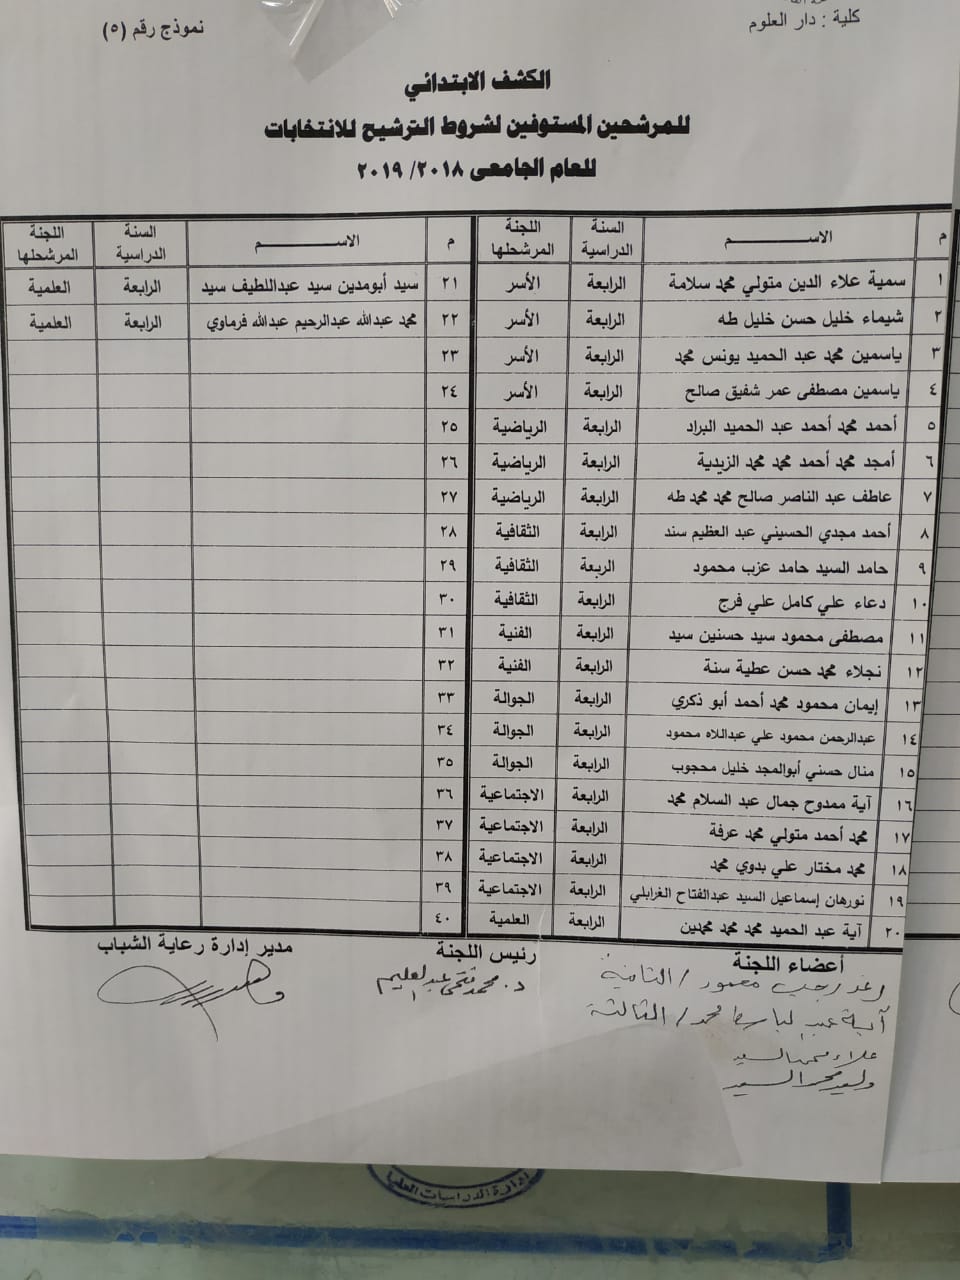 كلية : دار العلوم
نموذج رقم (٥)
الكشف الابتدائي
للمرشحين المستوفين لشروط الترشيح للانتخابات
للعام الجامعى ٢٠١٨/ ٢٠١٩
م الاســـــــم السنة الدراسية اللجنة المرشحلها م الاســـــــم السنة الدراسية اللجنة المرشحلها
١ سمية علاء الدين متولي محمد سلامة الرابعة الأسر ٢١ سيد أبومدين سيد عبداللطيف سيد الرابعة العلمية
٢ شيماء خليل حسن خليل طه الرابعة الأسر ٢٢ محمد عبدالله عبدالرحيم عبدالله فرماوي الرابعة العلمية
٣ ياسمين محمد عبد الحميد يونس محمد الرابعة الأسر ٢٣
٤ ياسمين مصطفى عمر شفيق صالح الرابعة الأسر ٢٤
٥ أحمد محمد أحمد عبد الحميد البراد الرابعة الرياضية ٢٥
٦ أمجد محمد أحمد محمد محمد الزيدية الرابعة الرياضية ٢٦
٧ عاطف عبد الناصر صالح محمد محمد طه الرابعة الرياضية ٢٧
٨ أحمد مجدي الحسيني عبد العظيم سند الرابعة الثقافية ٢٨
٩ حامد السيد حامد عزب محمود الربعة الثقافية ٢٩
١٠ دعاء علي كامل علي فرج الرابعة الثقافية ٣٠
١١ مصطفى محمود سيد حسنين سيد الرابعة الفنية ٣١
١٢ نجلاء محمد حسن عطية سنة الرابعة الفنية ٣٢
١٣ إيمان محمود محمد أحمد أبو ذكري الرابعة الجوالة ٣٣
١٤ عبدالرحمن محمود علي عبداللاه محمود الرابعة الجوالة ٣٤
١٥ منال حسني أبوالمجد خليل محجوب الرابعة الجوالة ٣٥
١٦ آية ممدوح جمال عبد السلام محمد الرابعة الاجتماعية ٣٦
١٧ محمد أحمد متولي محمد عرفة الرابعة الاجتماعية ٣٧
١٨ محمد مختار علي بدوي محمد الرابعة الاجتماعية ٣٨
١٩ نورهان إسماعيل السيد عبدالفتاح الغرابلي الرابعة الاجتماعية ٣٩
٢٠ آية عبد الحميد محمد محمد محمدين الرابعة العلمية ٤٠
أعضاء اللجنة رئيس اللجنة مدير إدارة رعاية الشباب
رغد رجب محمود / الثانية
د. محمد فتحى عبدالعليم
آية عبد الباسط محمد / الثالثة
علاء محمد السيد
وليد محمد السيد
إدارة الدراسات العليا